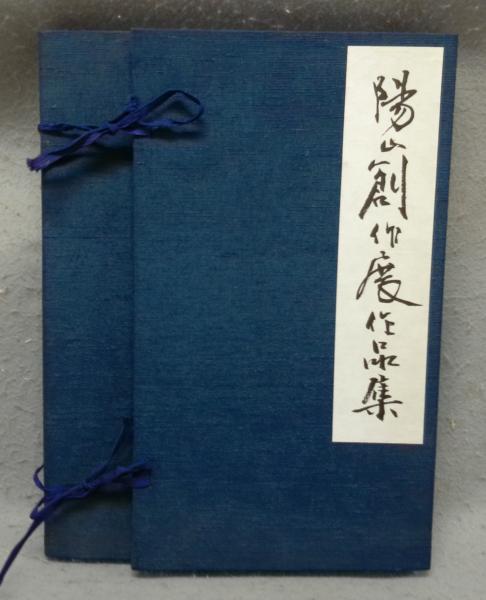 陽山創作展作品集